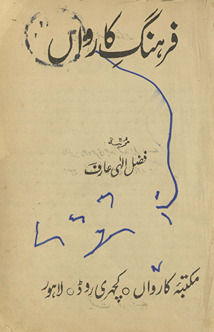 فرہنگِ کارواں
مرتبہ
فضل الٰہی عارف
مکتبۂ کارواں ○ کچہری روڈ ○ لاہور